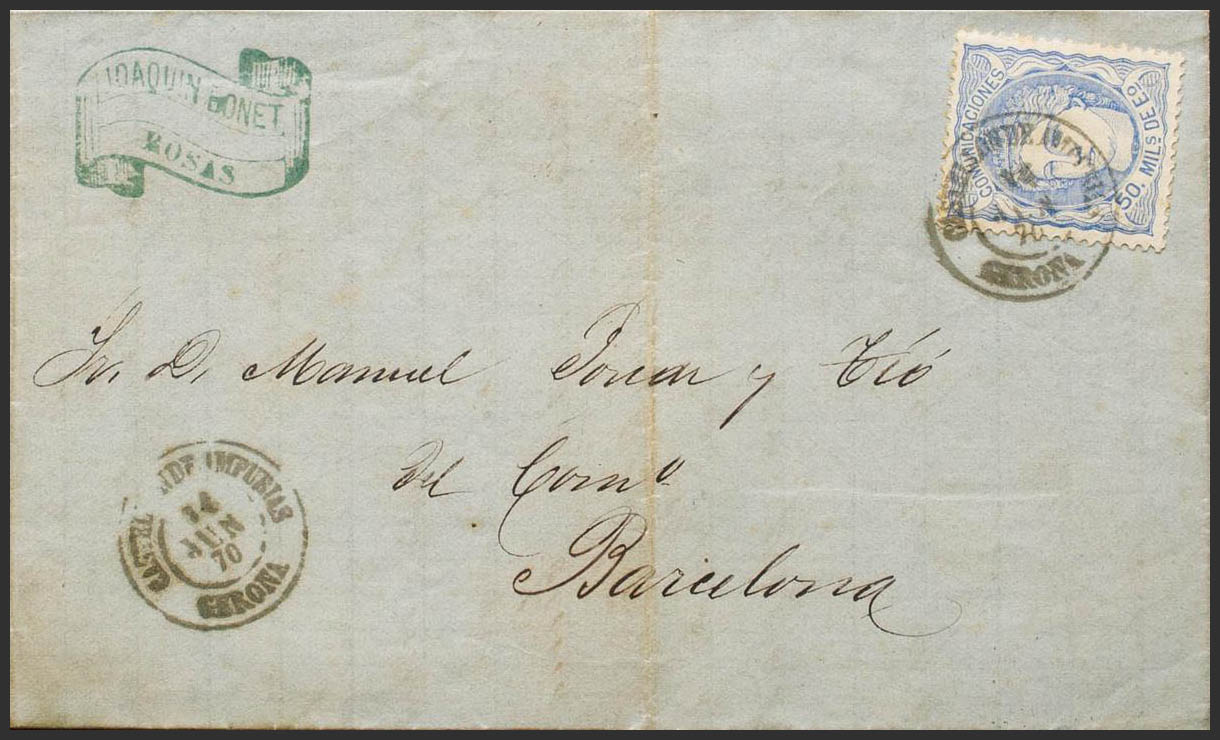 JOAQUIN BONET.
ROSAS
COMUNICACIONES
50. MILS. DE Eo.
14
JUN
70
GERONA
Sr. D. Manuel y Tió
del Como.
Barcelona
DE IMPURIAS
14
JUN
70
GERONA